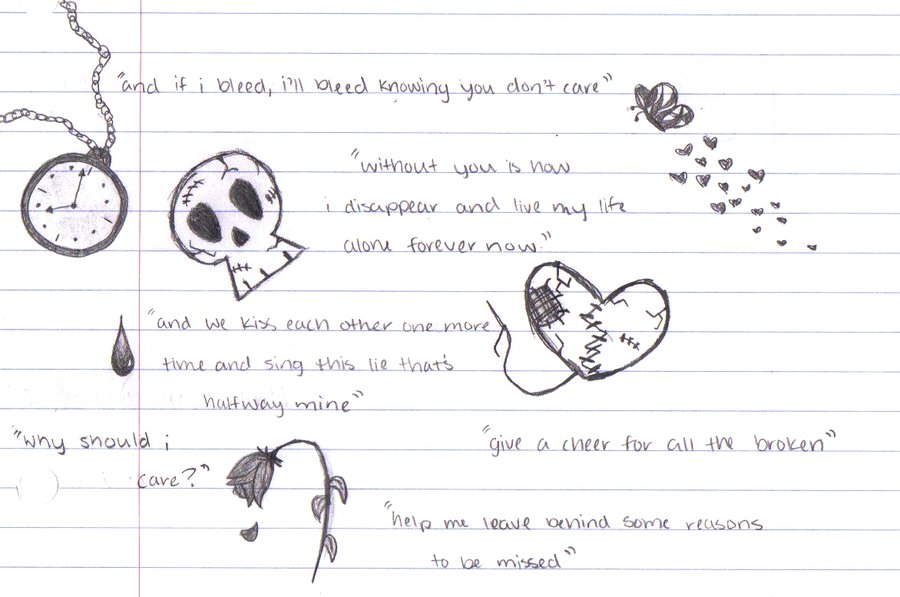 "and if i bleed, i'll bleed knowing you don't care"
"without you is how
i disappear and live my life
alone forever now."
"and we kiss each other one more
time and sing this lie that's
halfway mine"
"why should i
care?"
"give a cheer for all the broken"
"help me leave behind some reasons
to be missed"